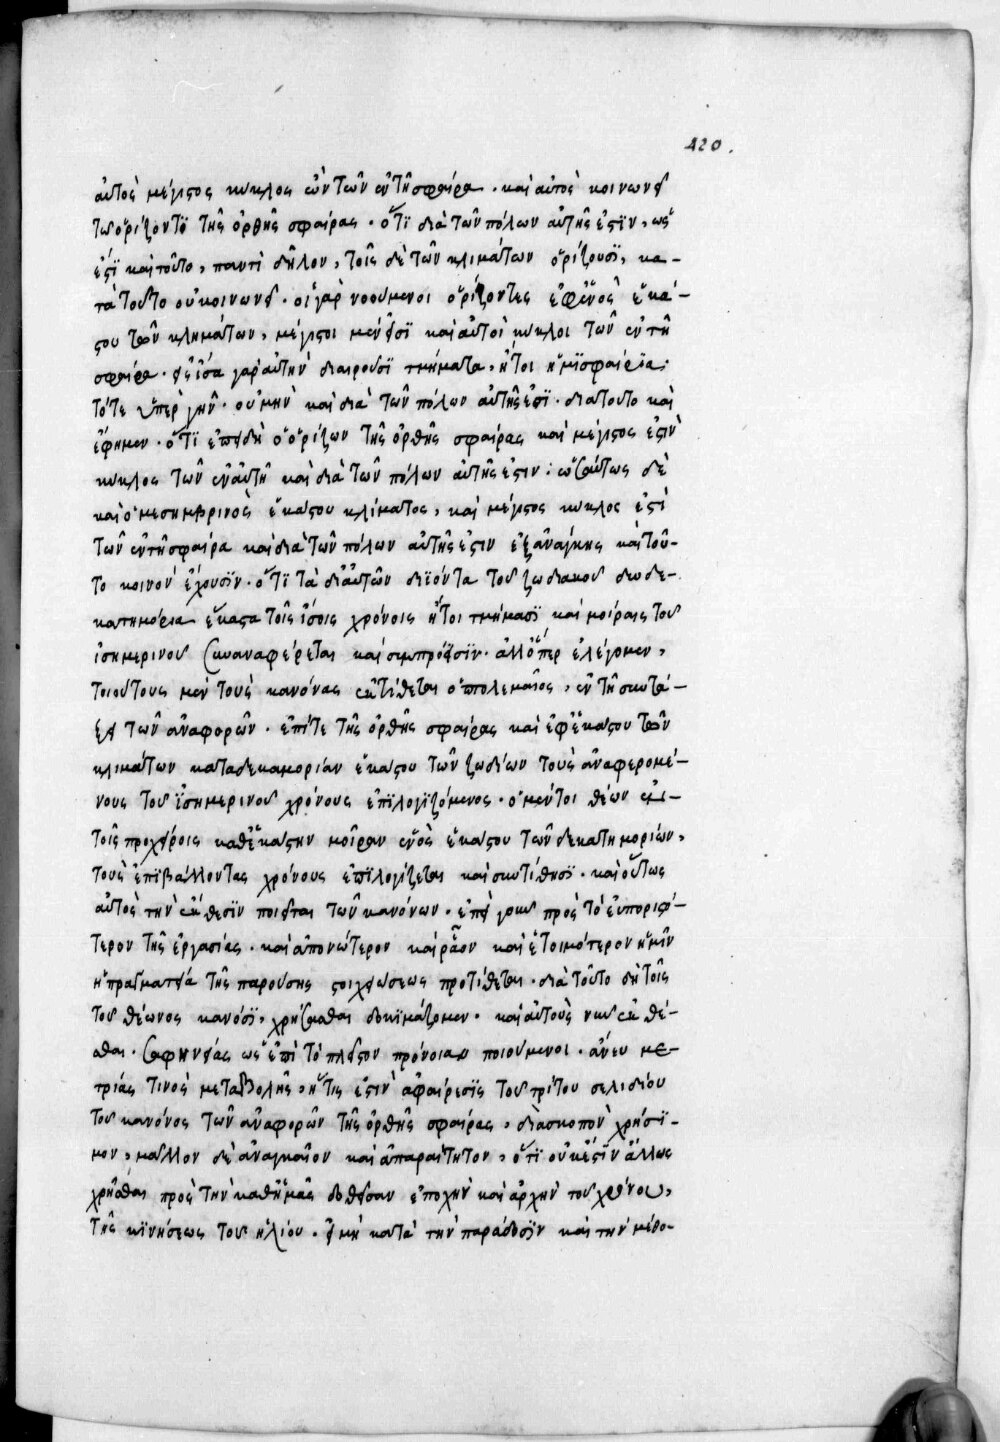 420.
αὐτὸς μέγιστος κύκλος ὢν τῶν ἐν τῇ σφαίρᾳ· καὶ αὐτὸς κοινωνεῖ
τῷ ὁρίζοντϊ τῆς ὀρθῆς σφαίρας· ὅτϊ διὰ τῶν πόλων αὐτῆς ἐστϊν, ὡς
ἐστϊ καὶ τοῦτο, παντὶ δῆλον, τοῖς δὲ τῶν κλιμάτων ὁρίζουσϊ, κα-
τὰ τοῦτο οὐ κοινωνεῖ· οἱ γὰρ νοούμενοι ὁρίζοντες ἐφ' ἑνὸς ἑκά-
στου τῶν κλημάτων, μέγιστοι μὲν εἰσϊ καὶ αὐτοὶ κύκλοι τῶν ἐν τῇ
σφαίρᾳ· εἰς ἴσα γὰρ αὐτὴν διαιροῦσϊ τμήματα, ἤτοι ἡμϊσφαίρϊα·
τότε ὑπὲρ γῆν· οὐ μὴν καὶ διὰ τῶν πόλων αὐτῆς εἰσϊ· διατοῦτο καὶ
ἔφημεν· ὅτϊ ἐπειδὴ ὁ ὁρίζων τῆς ὀρθῆς σφαίρας καὶ μέγιστος ἐστὶν
κύκλος τῶν ἐν αὐτῇ καὶ διὰ τῶν πόλων αὐτῆς ἐστιν· ὡσαύτως δὲ
καὶ ὁ μεσημβρινὸς ἑκάστου κλίματος, καὶ μέγιστος κύκλος ἐστὶ
τῶν ἐν τῇ σφαίρα καὶ διὰ τῶν πόλων αὐτῆς ἐστιν ἐξανάγκης καὶ τοῦ-
το κοινὸν ἔχουσϊν· ὅτϊ τὰ δι' αὐτῶν διϊόντα τοῦ ζωδιακοῦ δωδε-
κατημόρια ἕκαστα τοῖς ἴσοις χρόνοις ἤτοι τμήμασϊ καὶ μοίραις τοῦ
ἰσημερινοῦ συναναφέρεται καὶ συμπρόεισϊν· ἀλλ' ὅπερ ἐλέγομεν,
τοιούτους μὲν τοὺς κανόνας ἐκτίθεται ὁ πτολεμαῖος, ἐν τῇ συντά-
ξει τῶν ἀναφορῶν· ἐπί τε τῆς ὀρθῆς σφαίρας καὶ ἐφ' ἑκάστου τῶν
κλιμάτων κατὰ δεκαμοριάν ἑκάστου τῶν ζωδίων τοὺς ἀναφερομέ-
νους τοῦ ἰσημερινοῦ χρόνους ἐπϊλογϊζόμενος· ὁ μέντοι θέων ἐν
τοῖς προχείροις καθ' ἑκάστην μοῖραν ἑνὸς ἑκάστου τῶν δεκατημορίων,
τοὺς ἐπϊβάλλοντας χρόνους ἐπϊλογίζεται καὶ συντίθησϊ· καὶ οὕτως
αὐτὸς τὴν ἔκθεσϊν ποιεῖται τῶν κανόνων· ἐπεὶ γοῦν πρὸς τὸ εὐποριστό-
τερον τῆς ἐργασίας· καὶ ἀπονώτερον καὶ ῥᾷον καὶ ἑτοιμότερον ἡμῖν
ἡ πραγματεία τῆς παρούσης στοιχειώσεως προτίθεται· διὰ τοῦτο δὴ τοῖς
τοῦ θέωνος κανόσϊ, χρήσασθαι δοκϊμάζομεν· καὶ αὐτοὺς νῦν ἐκθέ-
σθαι· σαφηνείας ὡς ἐπὶ τὸ πλεῖστον πρόνοιαν ποιούμενοι· ἄνευ με-
τρίας τινὸς μεταβολῆς, ἥτις ἐστὶν ἀφαίρεσϊς τοῦ τρίτου σελιδίου
τοῦ κανόνος τῶν ἀναφορῶν τῆς ὀρθῆς σφαίρας, διὰ σκοπὸν χρήσϊ-
μον, μᾶλλον δὲ ἀναγκαῖον καὶ ἀπαραίτητον, ὅτϊ οὐκ ἔστϊν ἄλλως
χρῆσθαι πρὸς τὴν καθ' ἡμᾶς δοθεῖσαν ἐποχὴν καὶ ἀρχὴν τοῦ χρόνου,
τῆς κϊνήσεως τοῦ ἡλίου· εἰ μὴ κατὰ τὴν παράδοσϊν καὶ τὴν μέθο-